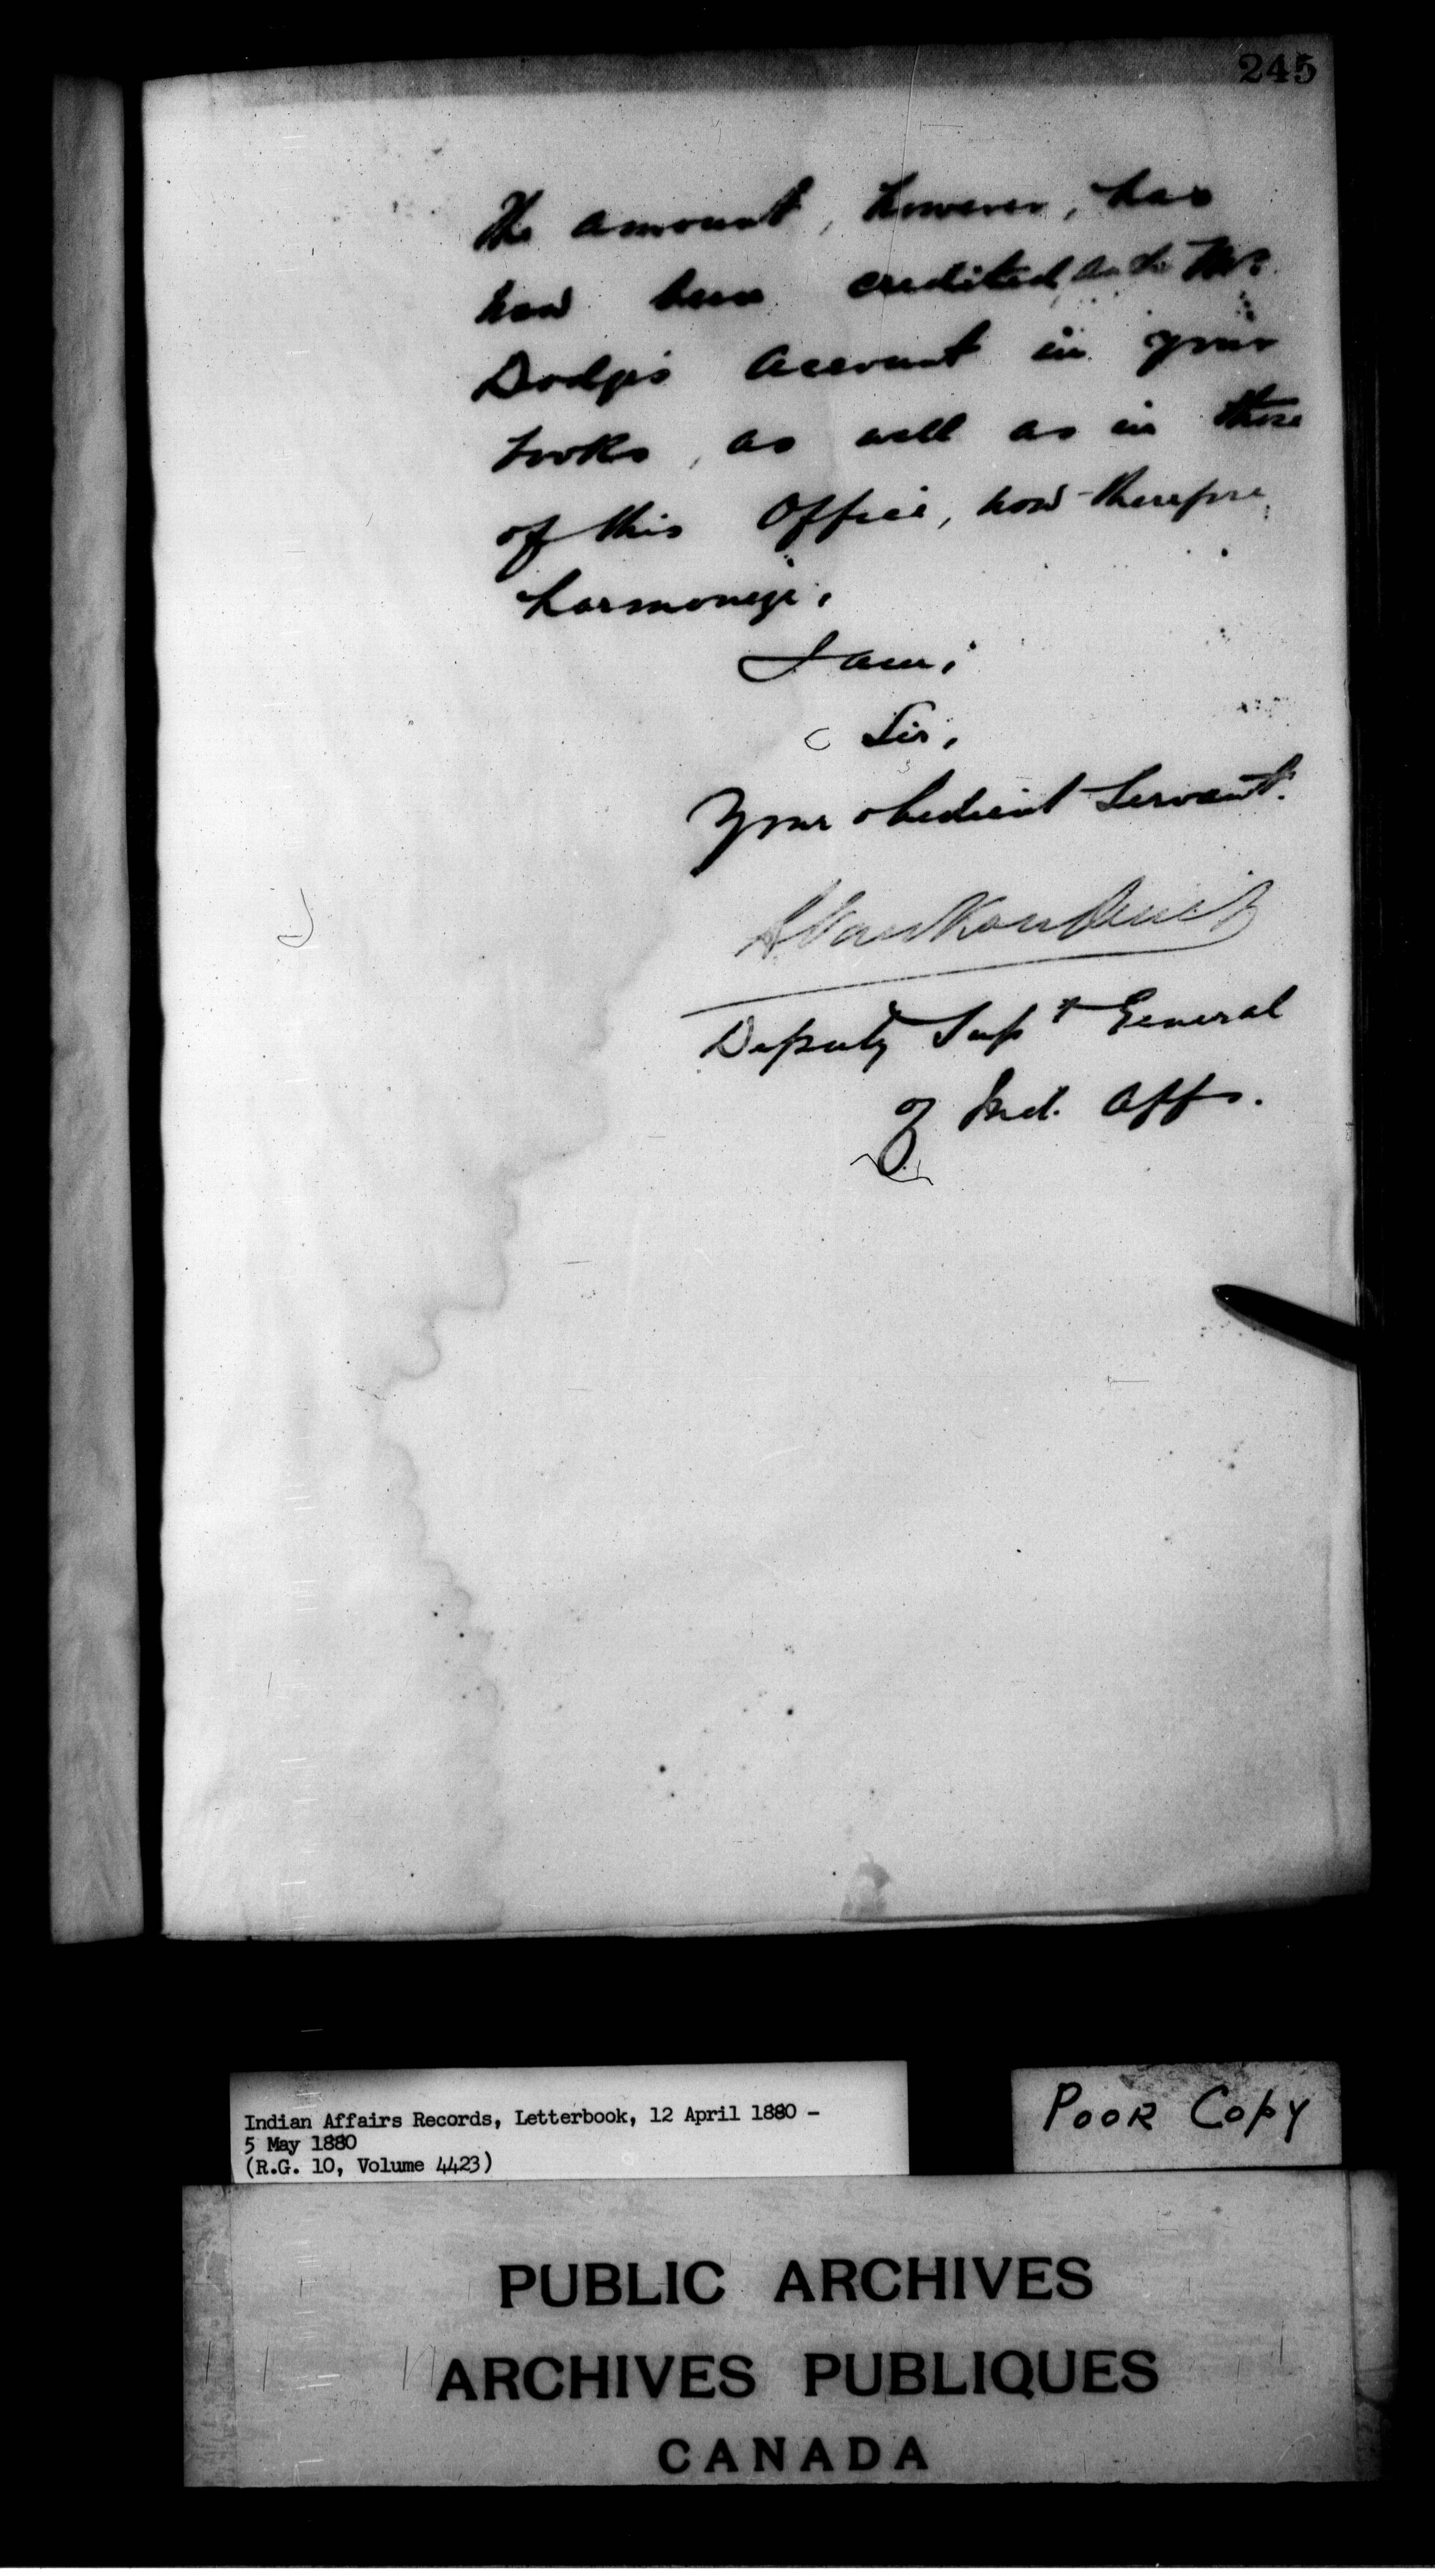 245
The amount, however, has
now been credited, and Mr.
Dodge's Account in your
books, as well as in those
of this Office, now therefore
harmonize.
I am,
Sir,
Your obedient Servant.
L VanKoughnet
Deputy Supt General
of Ind. Affs.
Indian Affairs Records, Letterbook, 12 April 1880 -
5 May 1880
(R.G. 10, Volume 4423)
POOR COPY
PUBLIC ARCHIVES
ARCHIVES PUBLIQUES
CANADA